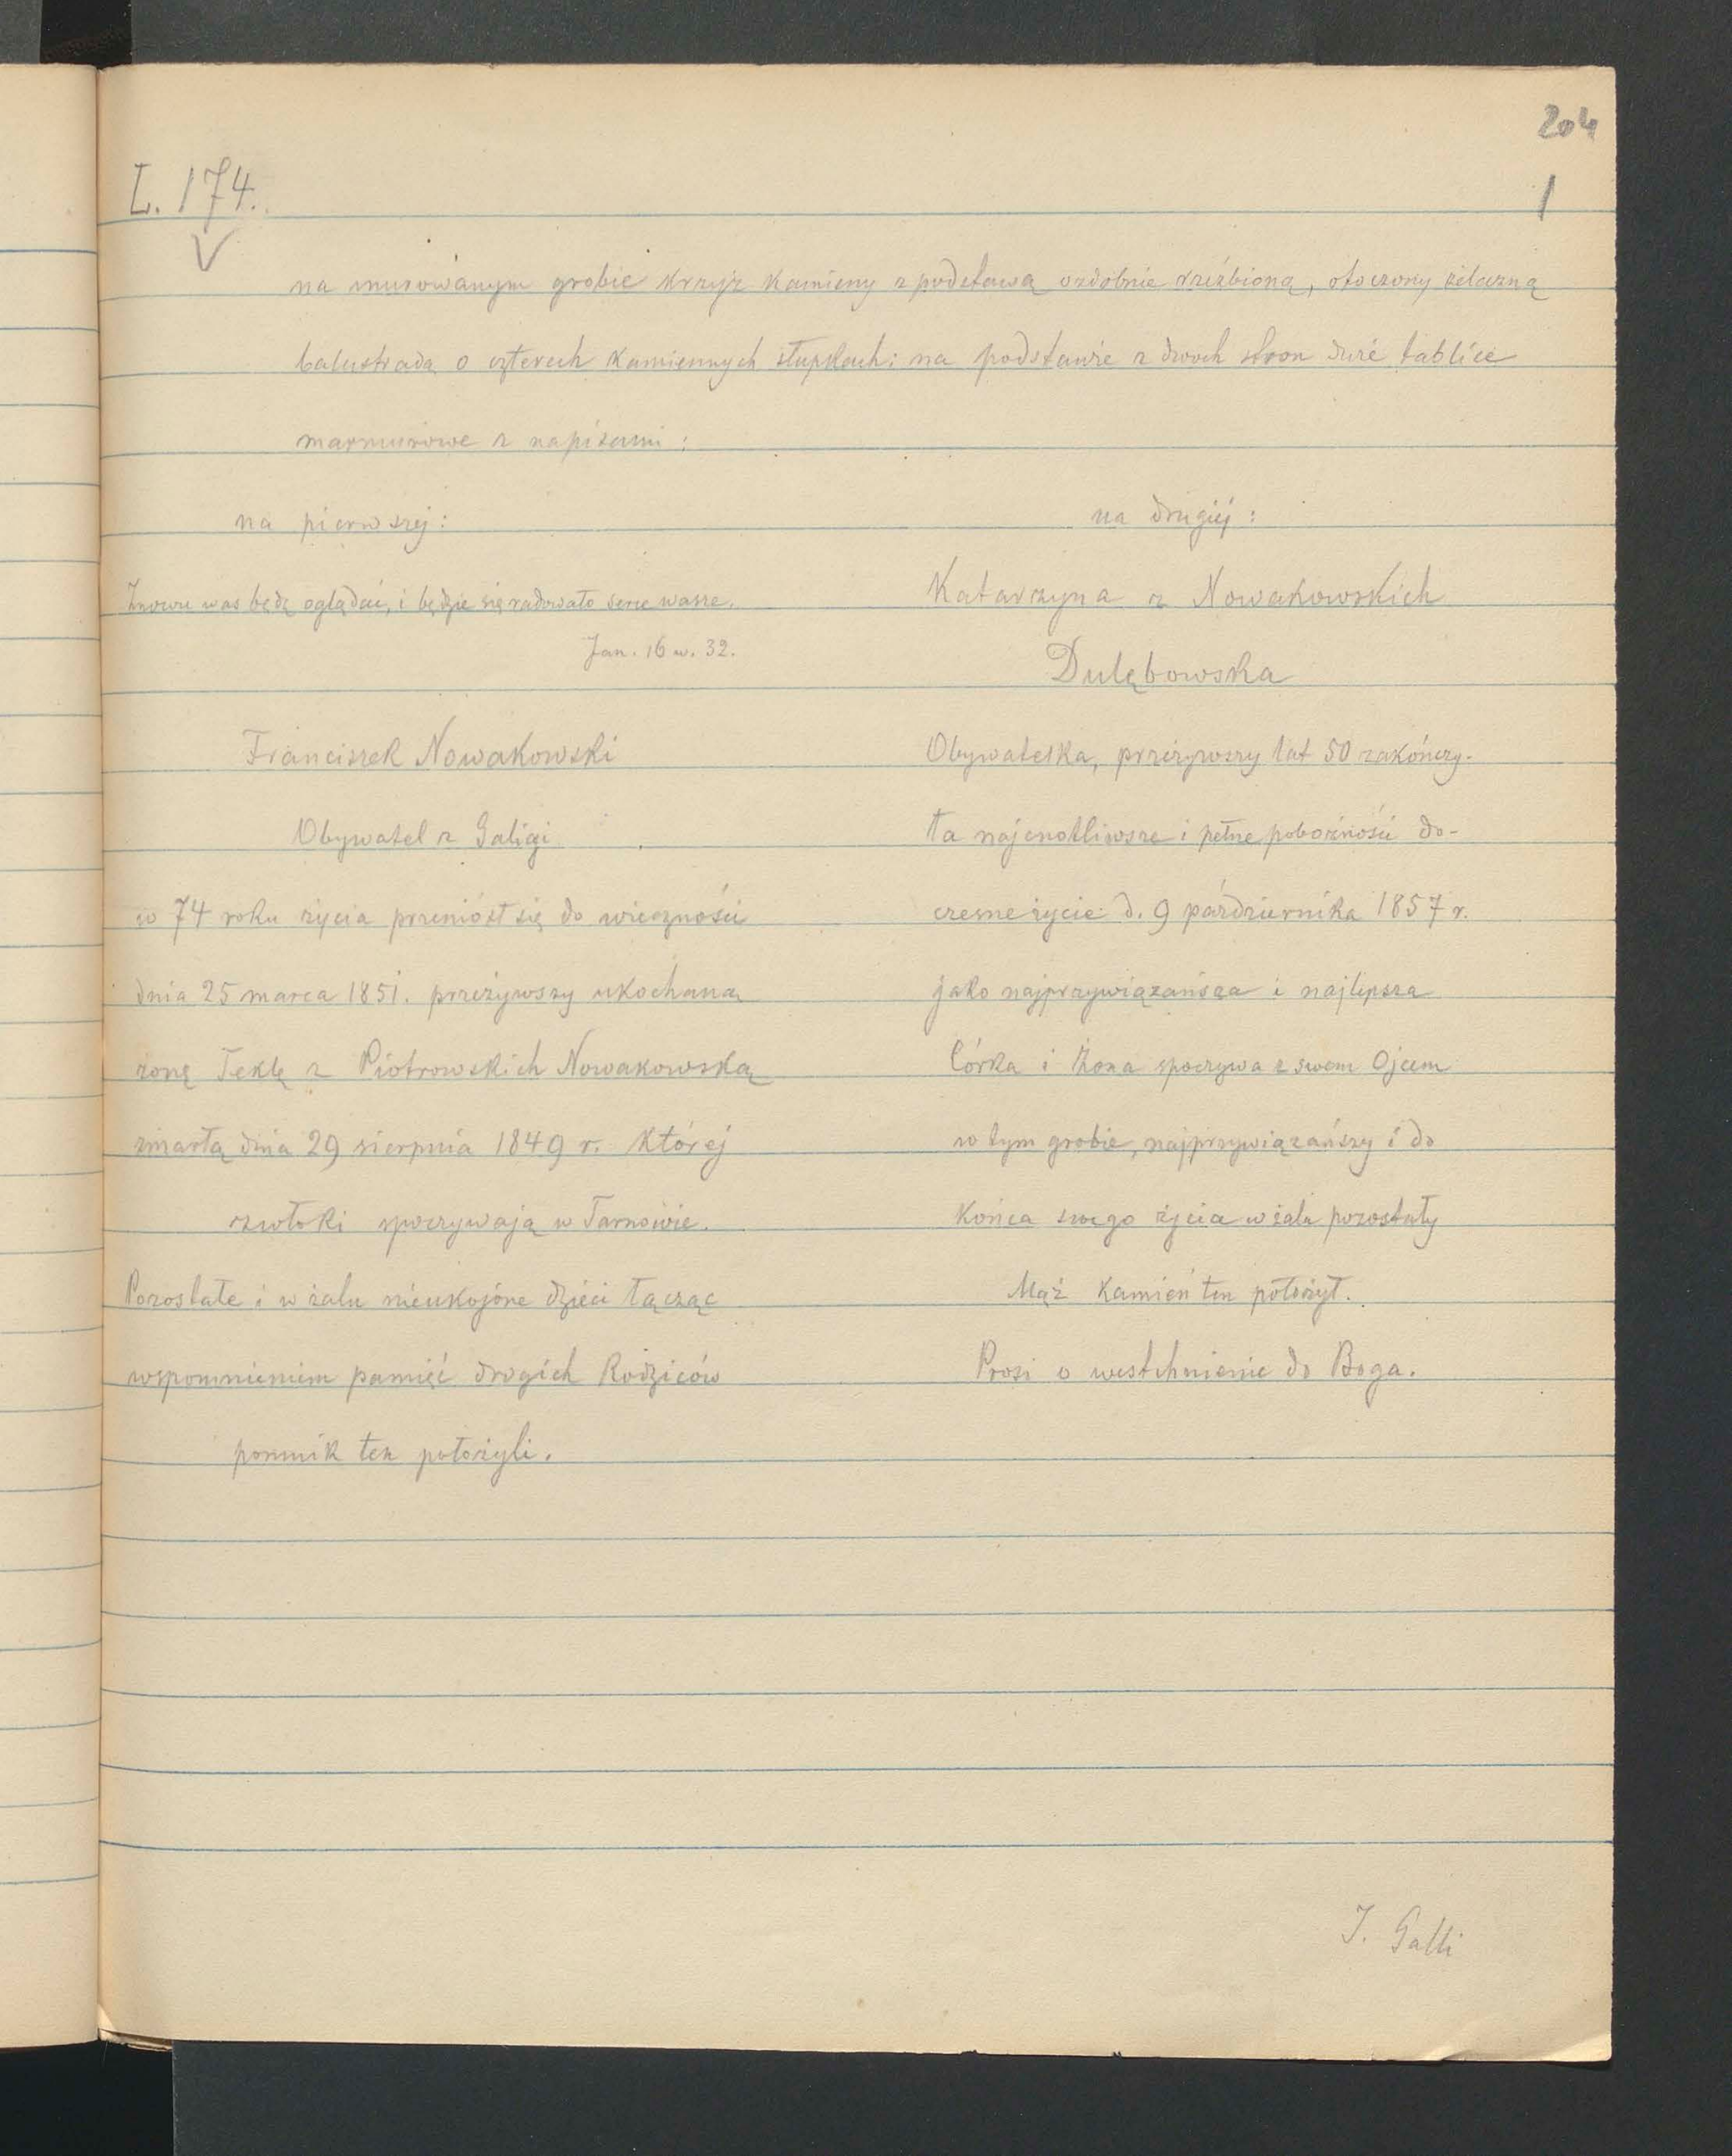 204
L. 174.
1
na murowanym grobie krzyż kamieny z podstawą ozdobnie rzeźbioną, otoczony żelazną
balustradą o czterech kamiennych słupkach: na podstawie z dwoch stron dwie tablice
marmurowe z napisami:
na pierwszej:
Znowu was będę oglądać, i będzie się radowało serce wasze.
Jan. 16 w. 32.
Franciszek Nowakowski
Obywatel z Galicji
w 74 roku życia przeniósł się do wieczności
dnia 25 marca 1851. przeżywszy ukochaną
żonę Teklę z Piotrowskich Nowakowską
zmarłą dnia 29 sierpnia 1849 r. której
zwłoki spoczywają w Tarnowie.
Pozostałe i w żalu nieukojone dzieci łącząc
wspomnieniem pamięć drogich Rodziców
pomnik ten położyli.
na drugiej:
Katarzyna z Nowakowskich
Dulębowska
Obywatelka, przeżywszy lat 50 zakończy-
ła najcnotliwsze i pełne pobożności do-
czesne życie d. 9 października 1857 r.
jako najprzywiązańsza i najlepsza
Córka i Żona spoczywa z swem Ojcem
w tym grobie, najprzywiązańszy i do
końca swego życia w żalu pozostały
Mąż kamień ten położył.
Prosi o westchnienie do Boga.
J. Galli